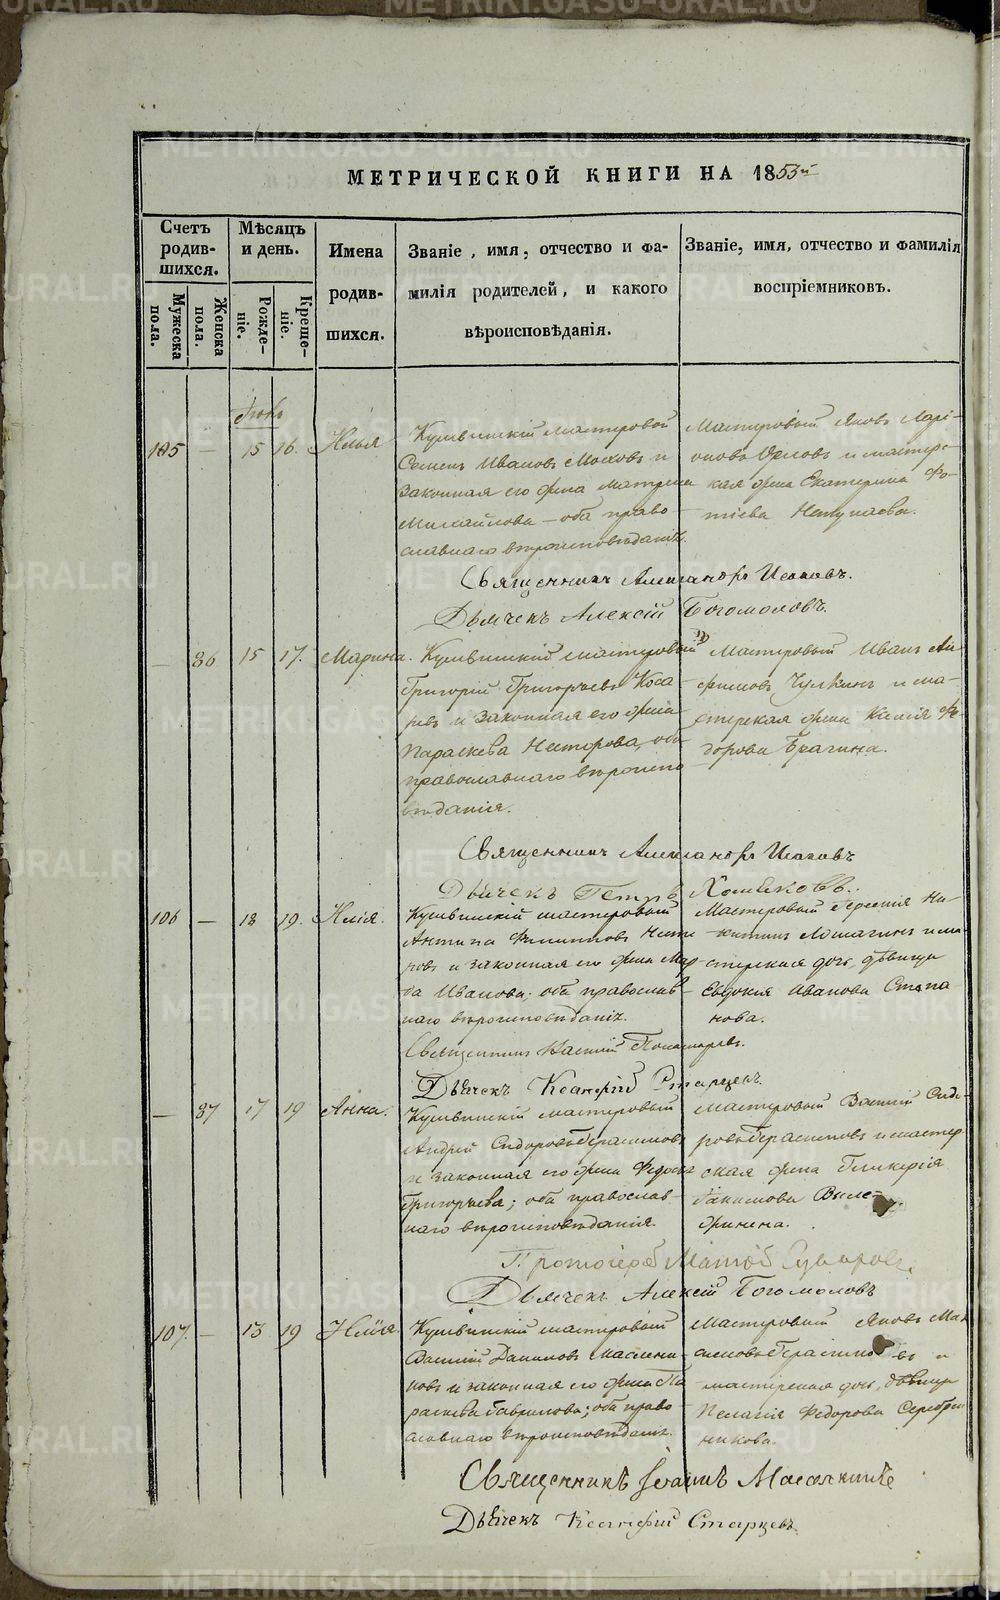 МЕТРИЧЕСКОЙ КНИГИ НА 1853й
Счетъ родив-шихся.
Мужеска пола.
Женска пола.
Мѣсяцъ и день.
Рожде-ніе.
Креще-ніе.
Имена
родив-
шихся.
Званіе, имя, отчество и фа-
милія родителей, и какого
вѣроисповѣданія.
Званіе, имя, отчество и фамилія
воспріемниковъ.
105 — 15 16. Илья
Кушвинскій мастеровой
Семенъ Ивановъ и
законная его жена Матрена
Михайлова — оба право
славнаго вѣроисповѣданія.
Мастеровый Яковъ Ларі-
оновъ Орловъ и мастерс-
кая жена Екатерина Фо-
тіева
Священникъ Александръ
Дьячекъ Алексій Богомоловъ.
— 86 15 17. Марина.
Кушвинскій мастеровый
Григорій Григорьевъ Коса
ревъ и законная его жена
Параскева Несторова, оба
православнаго вѣроиспо
вѣданія.
Мастеровый Иванъ Ан-
фимовъ Чулкинъ и ма-
стерская жена Ѳе-
дорова Брагина.
Священникъ Александръ
Дьячекъ Петръ Хомяковъ.
106 — 18 19. Илія.
Кушвинскій мастеровый
Антипа Филипповъ
новъ и законная его жена Мар-
ѳа Иванова; оба православ
наго вѣроисповѣданія.
Мастеровый Ни-
китинъ и ма-
стерская дочь, дѣвица
Евдокия Иванова Степа
нова.
Священникъ Василій Пономаревъ.
Дьячекъ Ксанфій Старцевъ.
— 87 17 19 Анна.
Кушвинскій мастеровый
Андрей Сидоровъ Герасимовъ
и законная его жена Федосья
Григорьева; оба православ-
наго вѣроисповѣданія.
Мастеровый Василий Сидо-
ровъ Герасимовъ и мастер
ская жена Гликерія
Протоіерей
Дьячекъ Алексій Богомоловъ
107. — 13 19 Илія
Кушвинскій мастеровый
Василий Даниловъ Маслени-
ковъ и законная его жена Па
раскева Гаврилова; оба право
славнаго вѣроисповѣданія.
Мастеровый Яковъ Мак
симовъ Герасимовъ и
мастерская дочь, дѣвица
Пелагія Федорова Серебрен
никова.
Священникъ Іоаннъ
Дьячекъ Ксанфій Старцевъ
METRIKI.GASO-URAL.RU